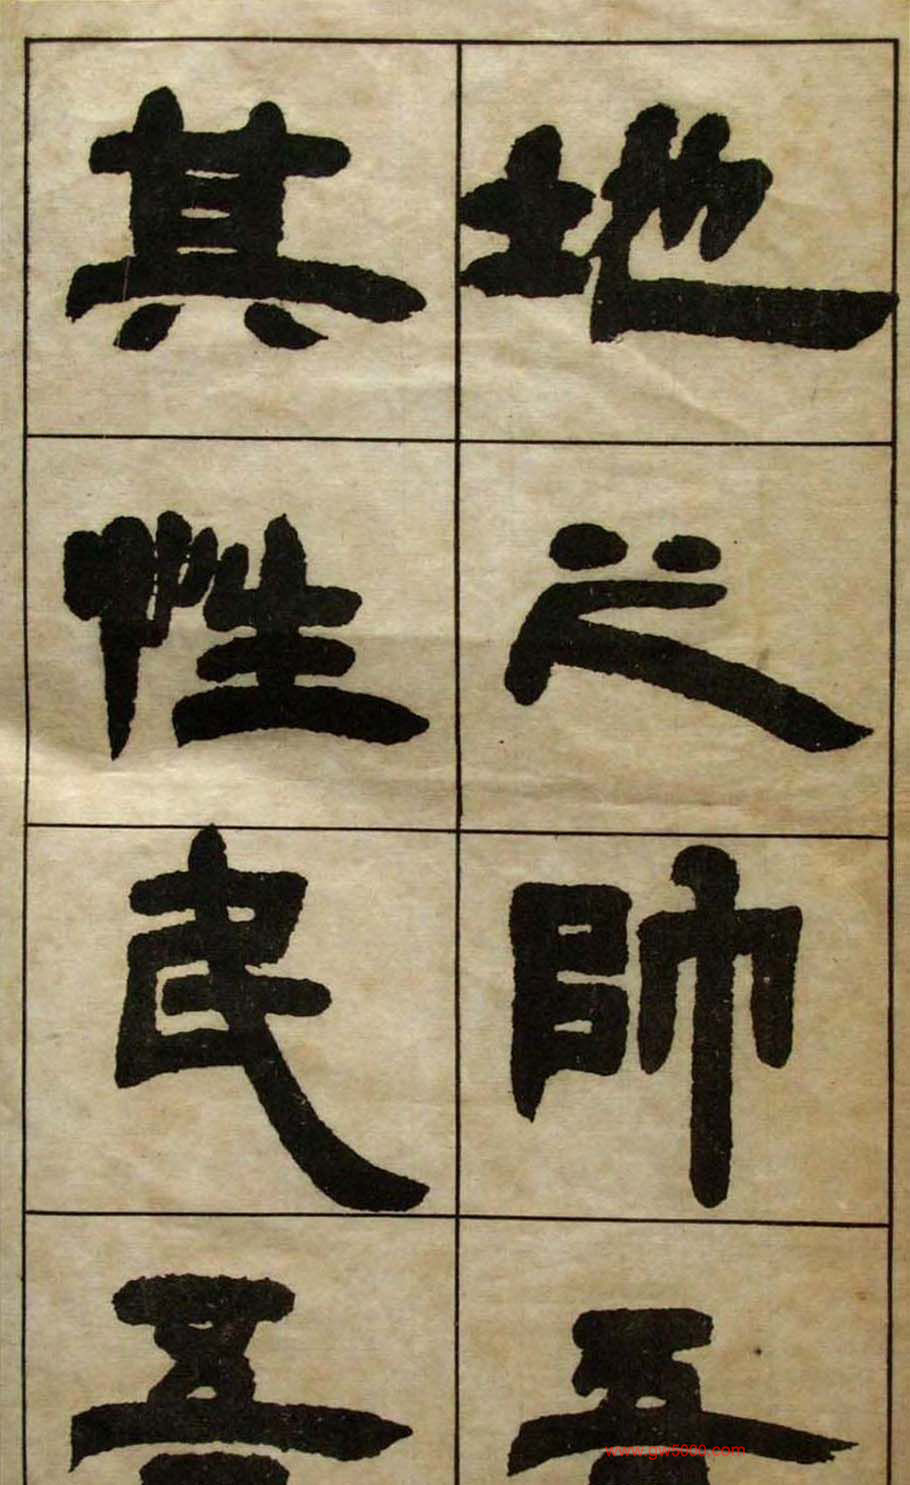 地之帥吾
其性民吾
www.gw5800.com